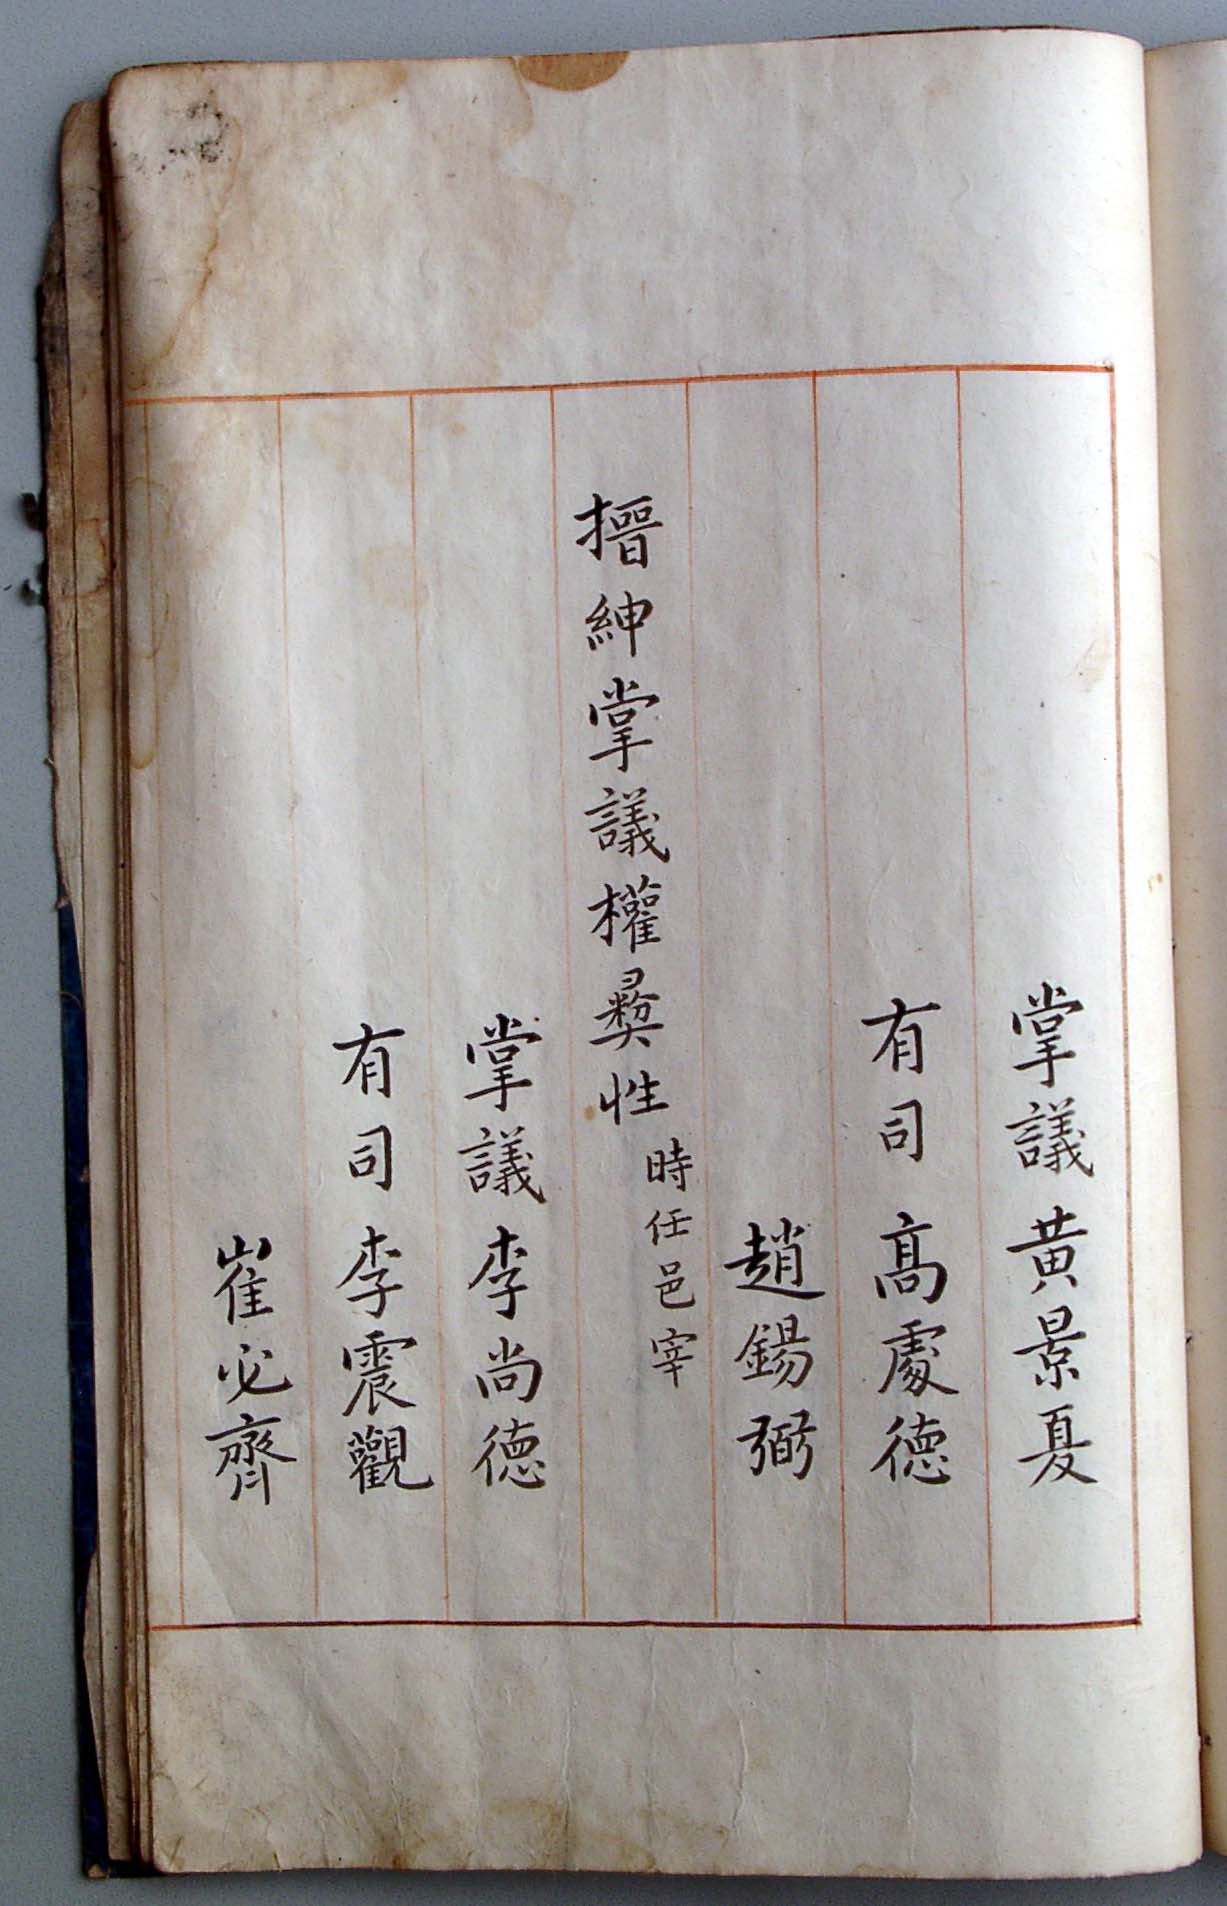 掌議黄景夏
有司高處德
趙錫弼
搢紳掌議權彛性 時任邑宰
掌議李尚德
有司李震觀
崔必齊